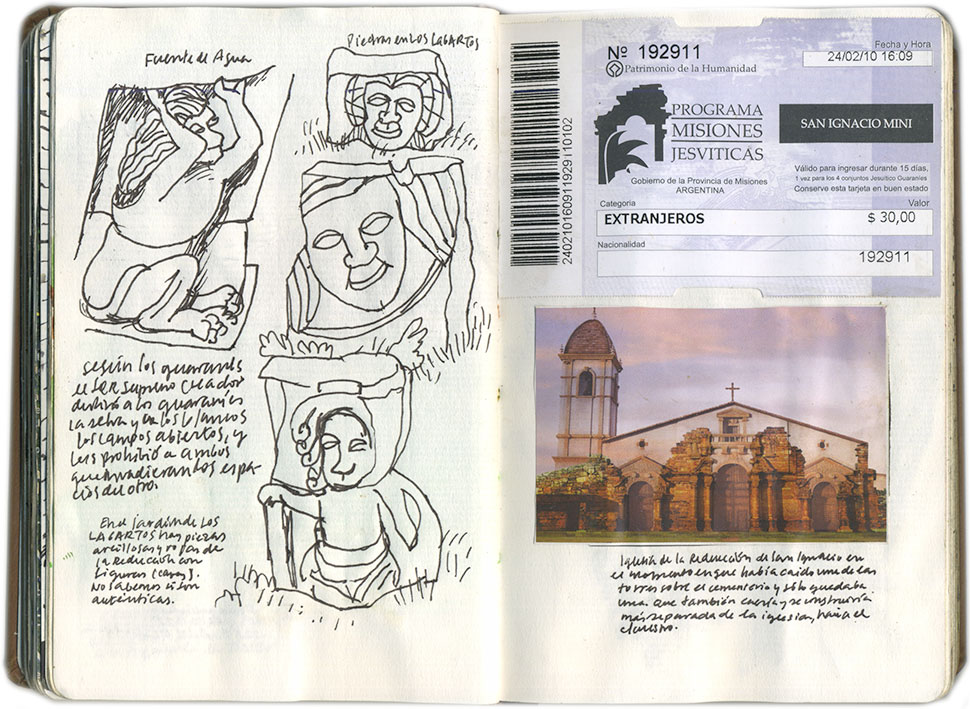 Fuente de Agua
Piedras en LOS LAGARTOS
según los guaraníes
el SER supremo creador
destinó a los guaraníes
la selva y a los blancos
los campos abiertos, y
les prohibió a ambos
que invadieran los espa-
cios del otro.
En el jardín de LOS
LAGARTOS hay piezas
arcillosas y rojas de
la Reducción con
figuras (caras).
No sabemos si son
auténticas.
Nº 192911
Patrimonio de la Humanidad
Fecha y Hora
24/02/10 16:09
PROGRAMA
MISIONES
JESVITICAS
SAN IGNACIO MINI
Gobierno de la Provincia de Misiones
ARGENTINA
Válido para ingresar durante 15 días,
1 vez para los 4 conjuntos Jesuítico Guaraníes
Conserve esta tarjeta en buen estado
Categoria
Valor
EXTRANJEROS
$ 30,00
Nacionalidad
192911
Iglesia de la Reducción de San Ignacio en
el momento en que había caído una de las
torres sobre el cementerio y sólo quedaba
una. Que también caería y se construiría
más separada de la iglesia, hacia el
claustro.